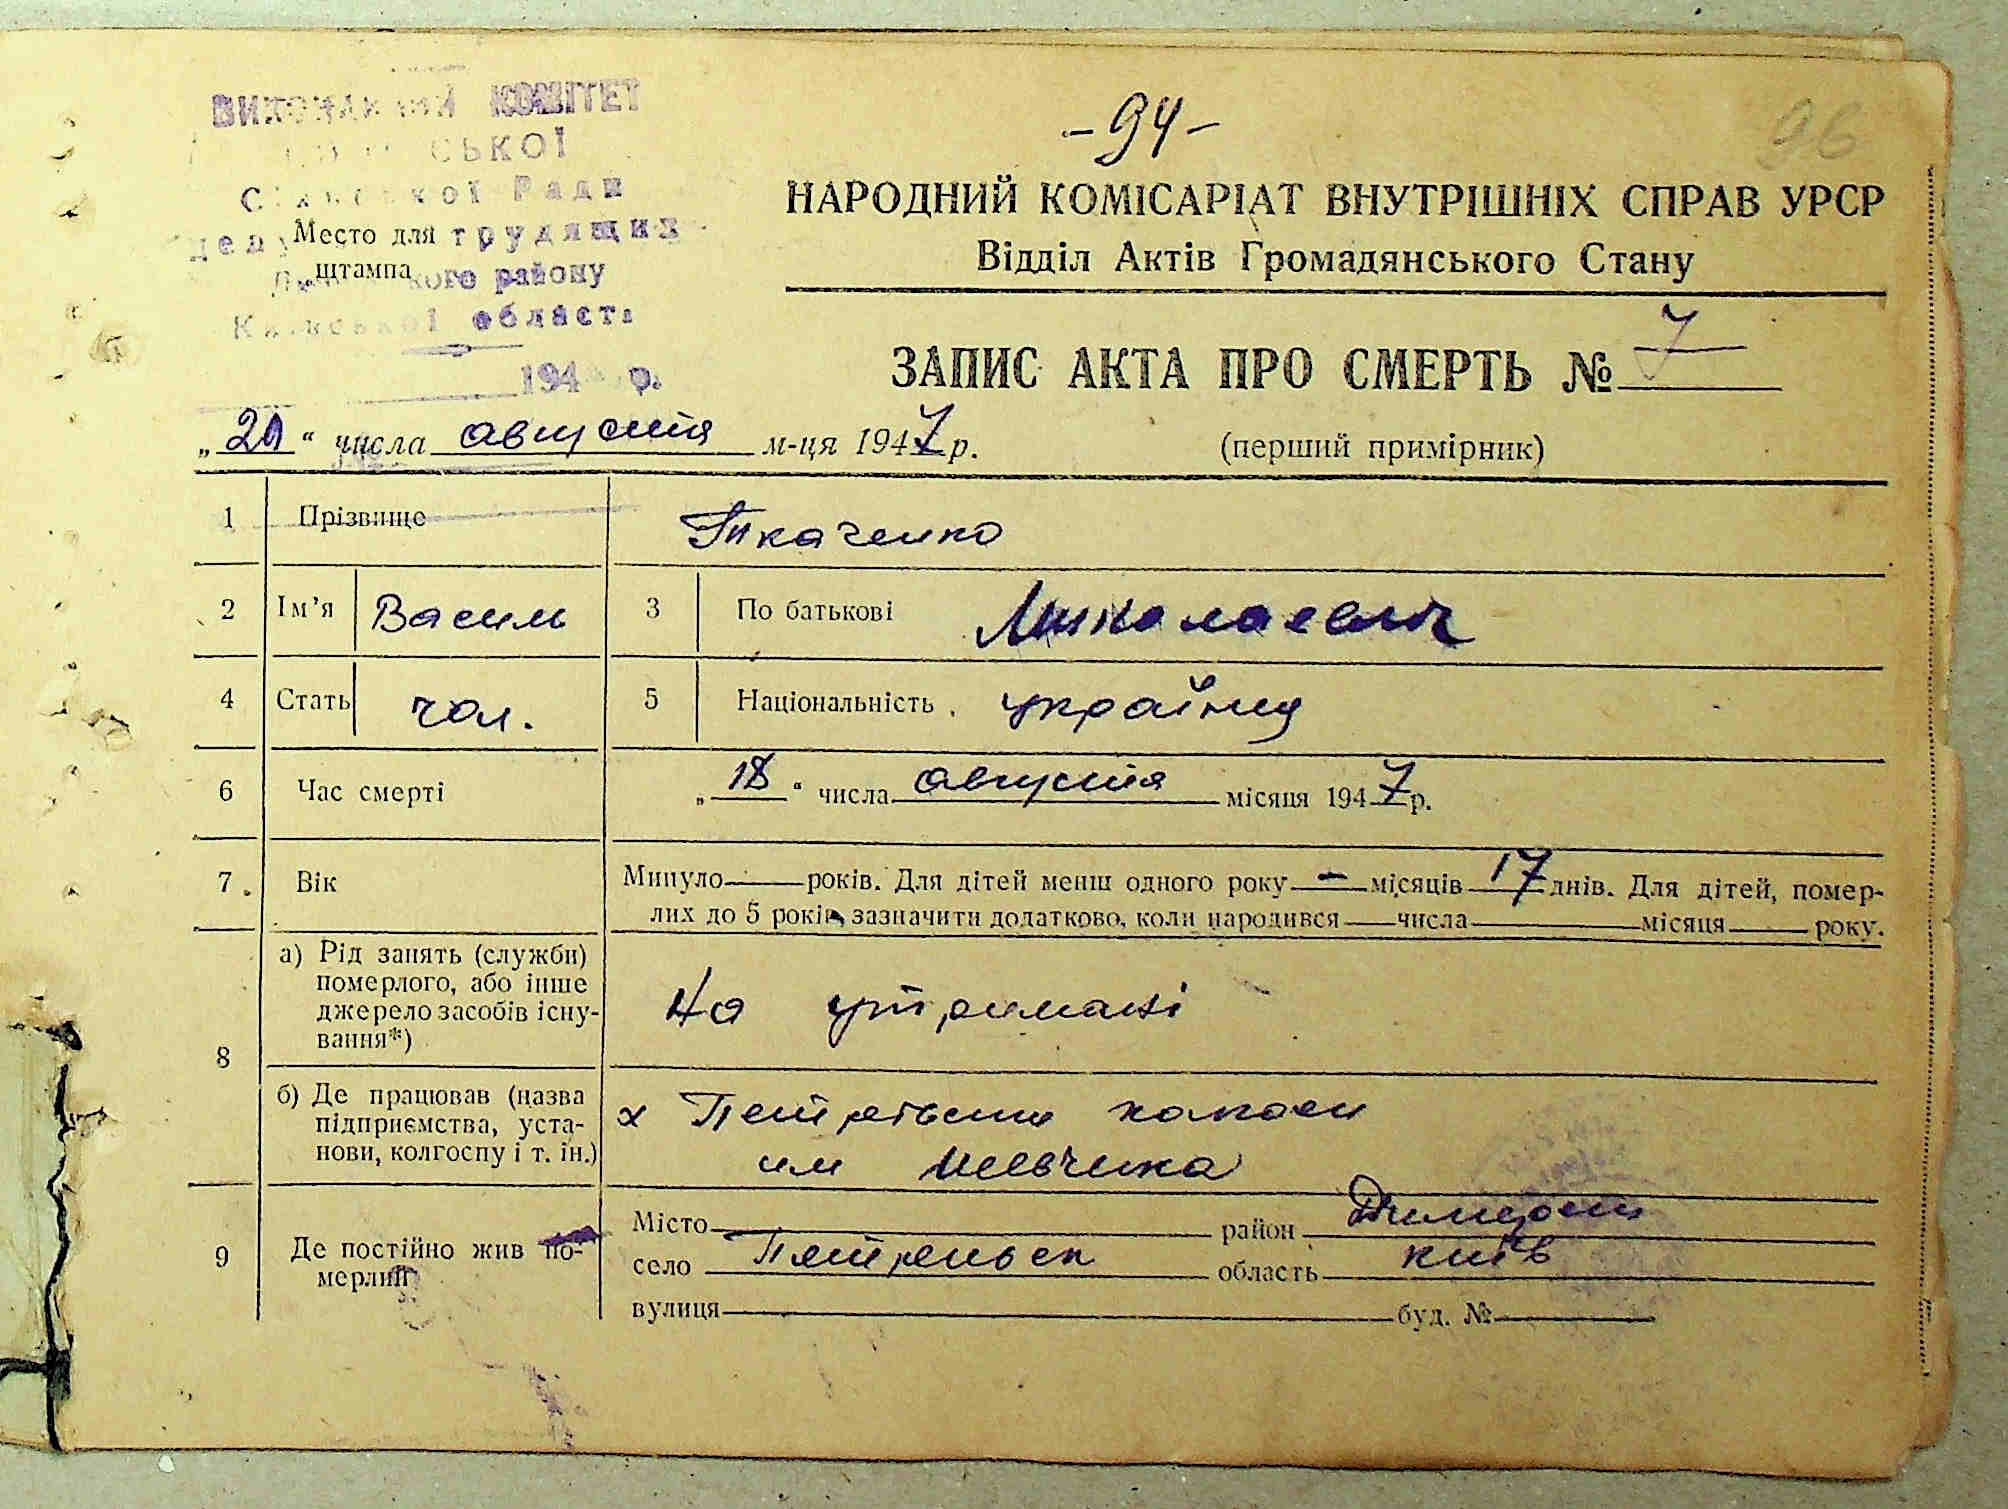 ВИКОНАВЧИЙ КОМІТЕТ
СЬКОЇ
Сільської Ради
деп трудящих
Место для
штампа
кого району
Київської області
194 р.
- 94 -
96
НАРОДНИЙ КОМІСАРІАТ ВНУТРІШНІХ СПРАВ УРСР
Відділ Актів Громадянського Стану
ЗАПИС АКТА ПРО СМЕРТЬ № 7
„20“ числа августа м-ця 1947 р.
(перший примірник)
1 Прізвище Ткаченко
2 Ім’я Василь 3 По батькові Миколаевич
4 Стать чол. 5 Національність українец
6 Час смерті „18“ числа августа місяця 1947 р.
7 Вік Минуло — років. Для дітей менш одного року — місяців 17 днів. Для дітей, помер-
лих до 5 років, зазначити додатково, коли народився — числа місяця року.
8 а) Рід занять (служби)
померлого, або інше
джерело засобів існу-
вання*)
На утримані
б) Де працював (назва
підприємства, уста-
нови, колгоспу і т. ін.)
им Шевченка
9 Де постійно жив по-
мерлий
Місто район Димерськ
село область Київ
вулиця буд. №